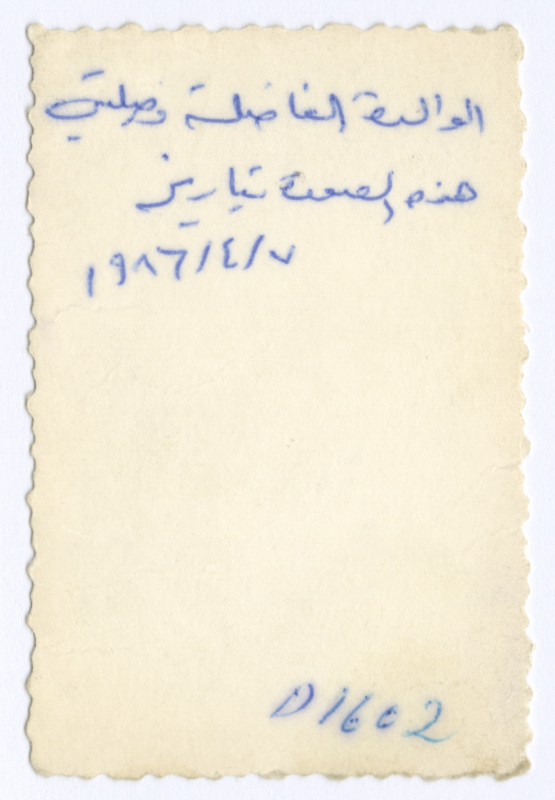 الوالدة الفاضلة وصلتني
هذه الصورة بتاريخ
١٩٨٦/٤/٧
D1602